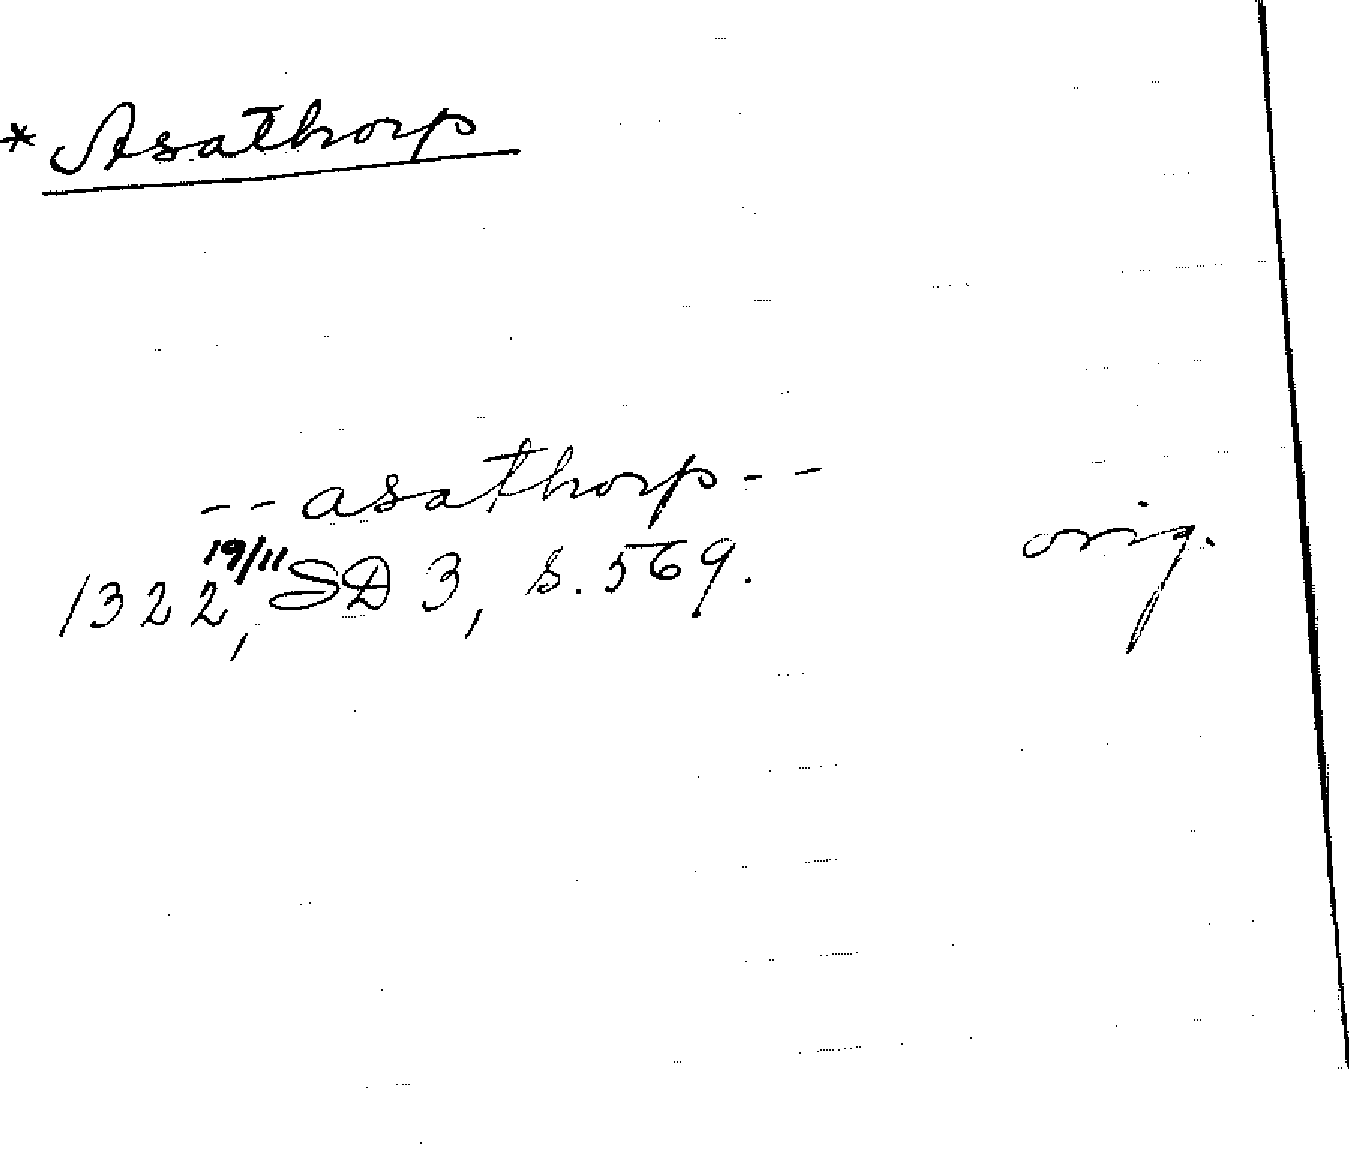 * Asathorp
-- asathorp --
1322, 19/11 SD 3, s. 569. orig.